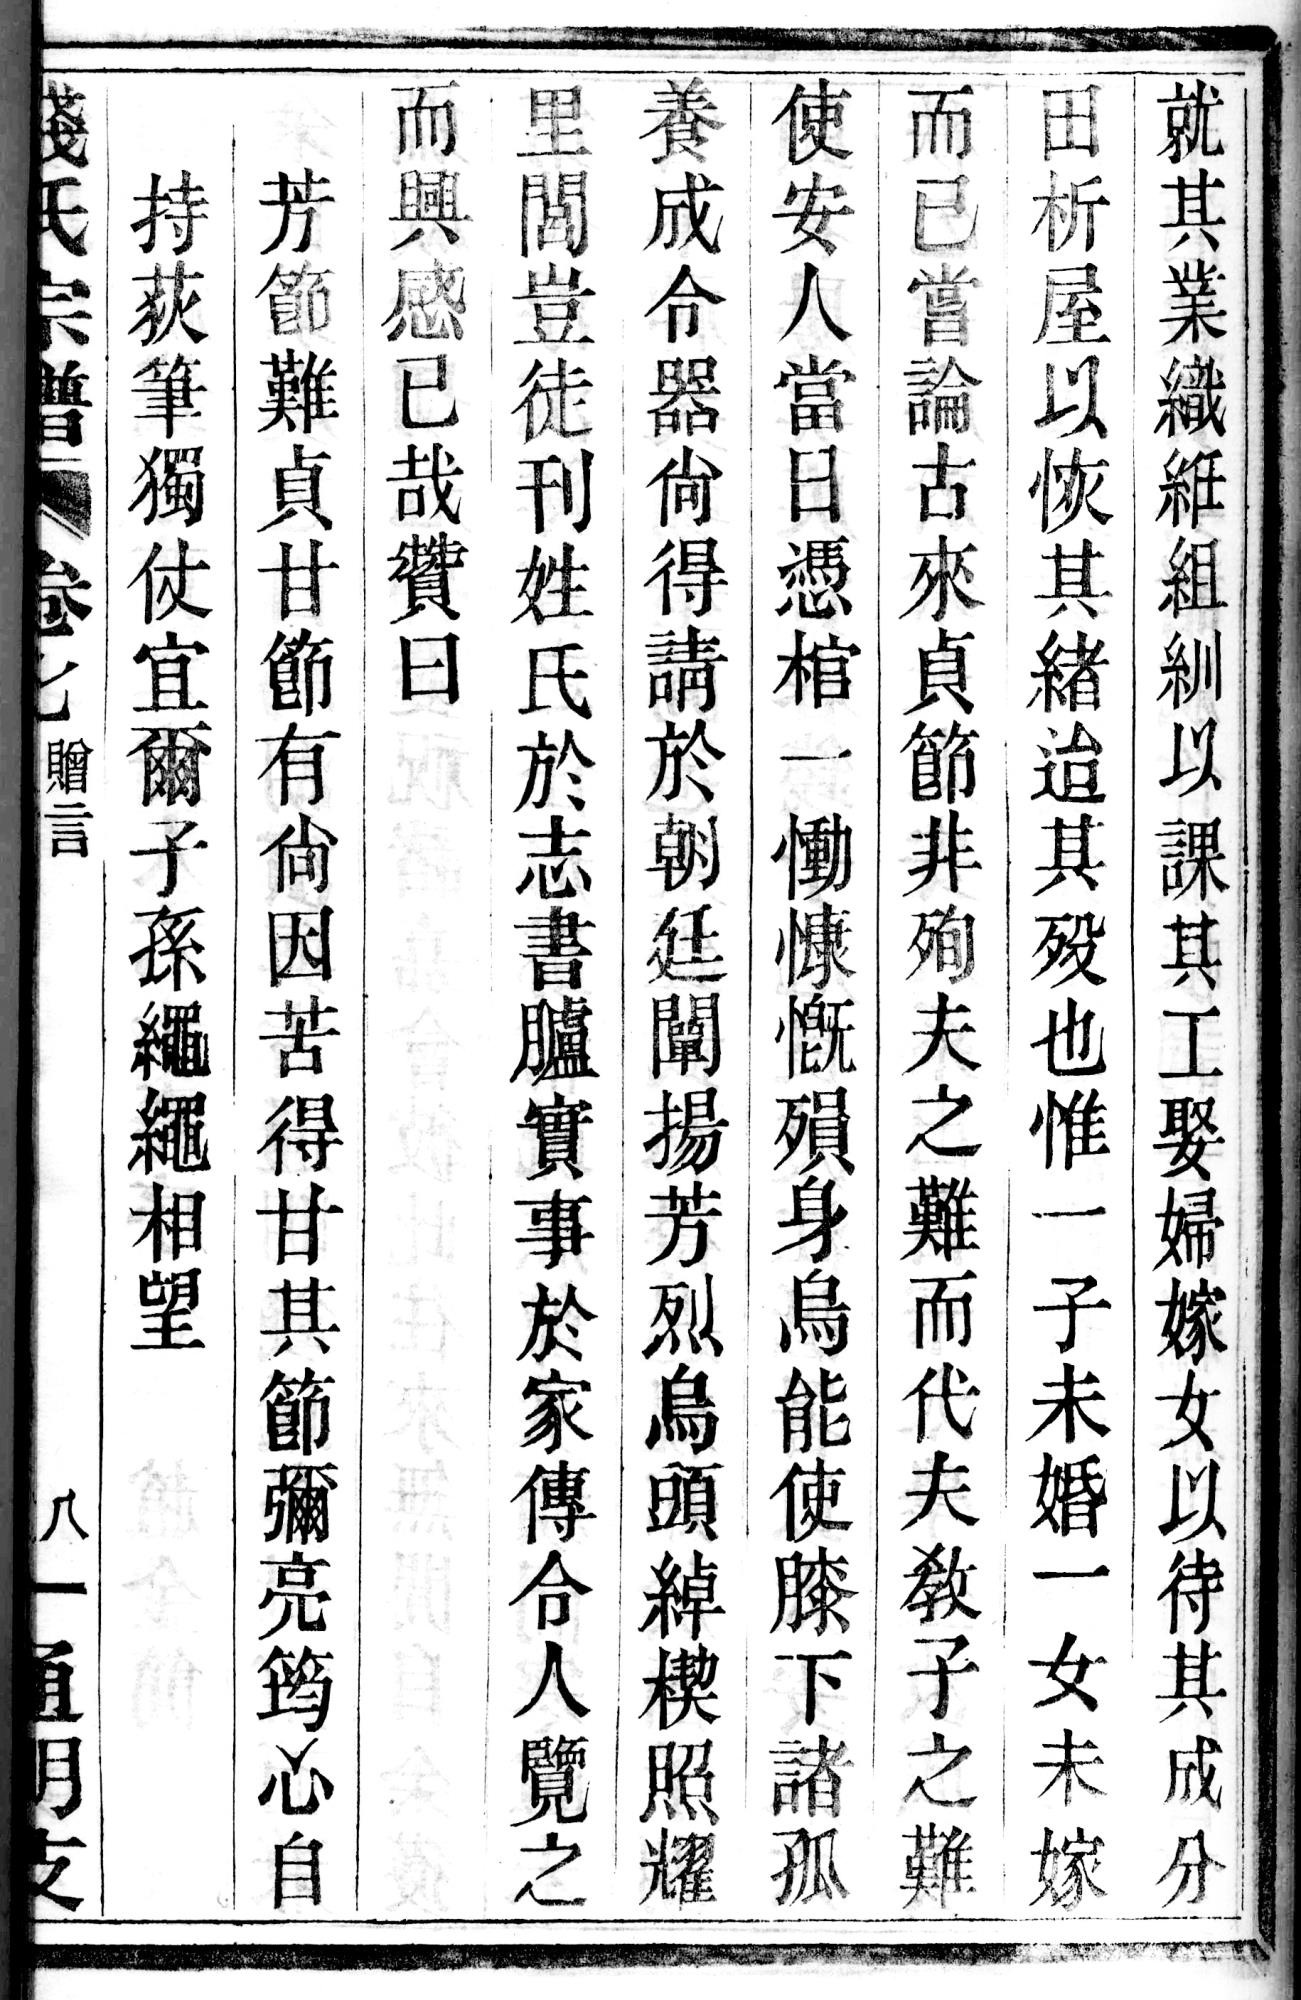 就其業織絍組紃以課其工娶婦嫁女以待其成分
田析屋以恢其緒迨其歿也惟一子未婚一女未嫁
而已嘗論古來貞節非殉夫之難而代夫敎子之難
使安人當日憑棺一慟慷慨殞身烏能使膝下諸孤
養成令器尙得請於朝廷闡揚芳烈烏頭綽楔照耀
里閭豈徒刊姓氏於志書臚實事於家傳令人覽之
而興感已哉贊曰
芳節難貞甘節有尙因苦得甘其節彌亮筠心自
持荻筆獨仗宜爾子孫繩繩相望
錢氏宗譜 卷七 贈言 八一 通明支